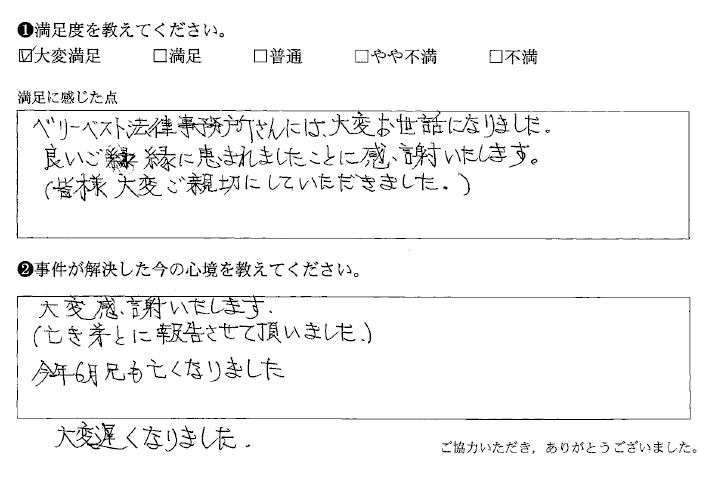 ❶満足度を教えてください。
☑大変満足 □満足 □普通 □やや不満 □不満
満足に感じた点
ベリーベスト法律事務所さんには、大変お世話になりました。
良いご縁に恵まれましたことに感謝いたします。
(皆様大変ご親切にしていただきました。)
❷事件が解決した今の心境を教えてください。
大変感謝いたします。
(亡き弟とに報告させて頂いました。)
今年6月兄も亡くなりました
大変遅くなりました.
ご協力いただき，ありがとうございました。